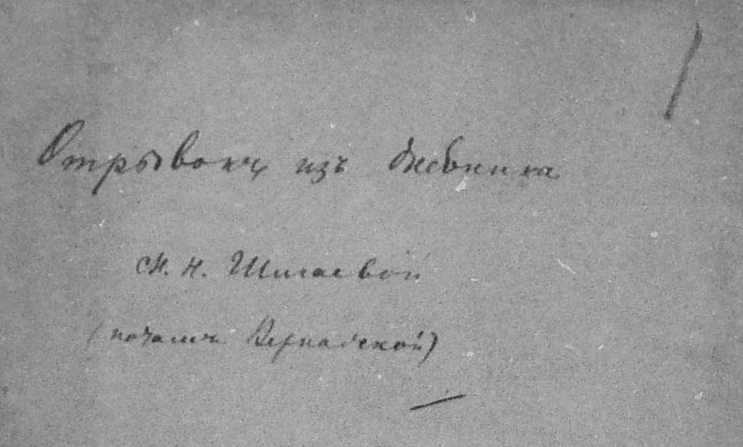 Отрывокъ изъ дневника
М. Н. Шигаевой
(потомъ Вернадской)